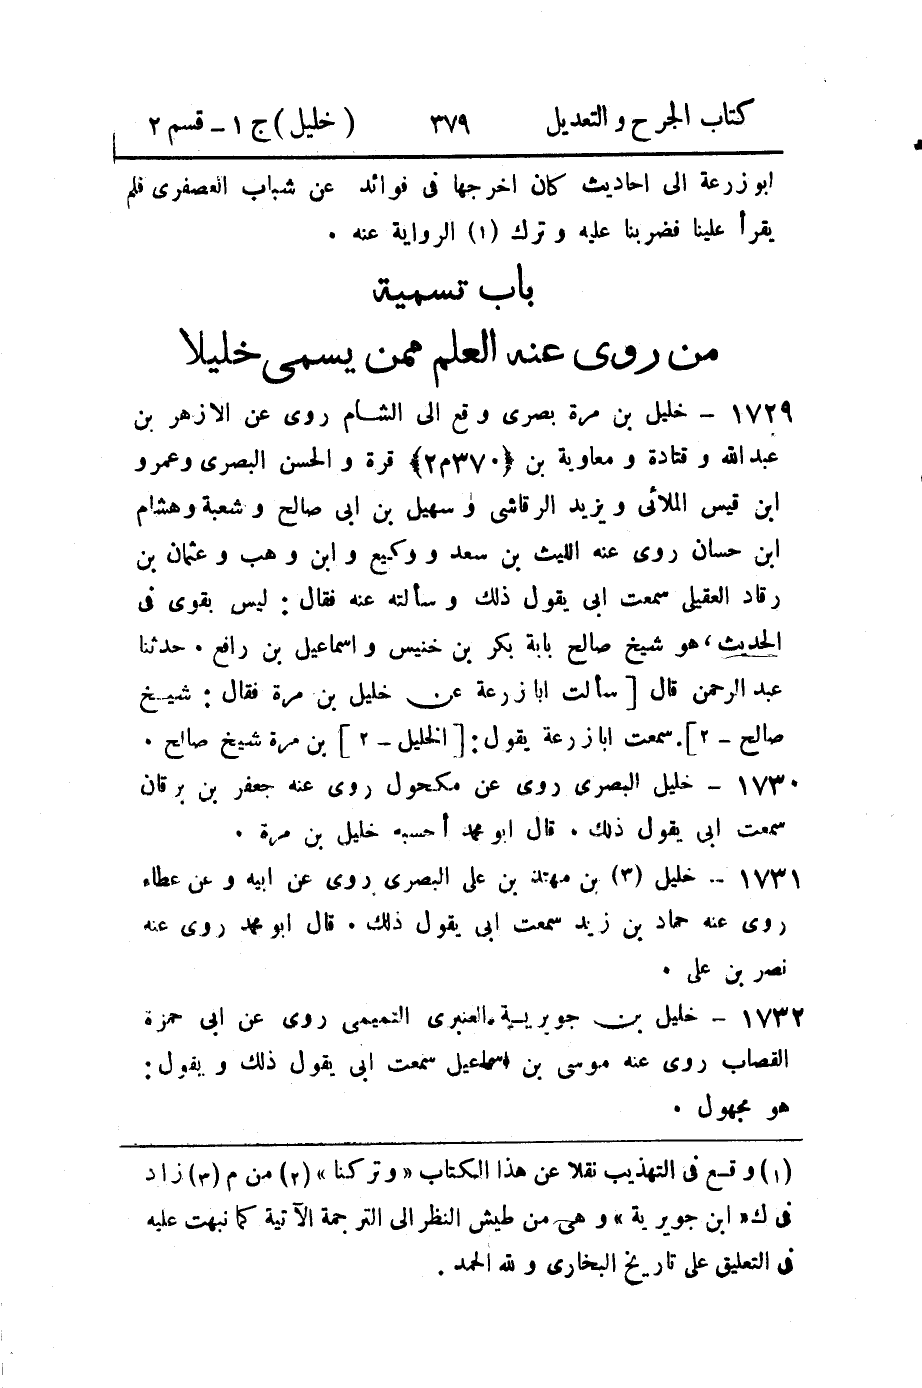 كتاب الجرح والتعديل ٣٧٩ (خليل) ج ١ - قسم ٢
ابو زرعة الى احاديث كان اخرجها فى فوائد عن شباب العصفرى فلم
يقرأ علينا فضربنا عليه وترك (١) الرواية عنه .
باب تسمية
من روى عنه العلم ممن يسمى خليلا
١٧٢٩ - خليل بن مرة بصرى وقع الى الشام روى عن الازهر بن
عبد الله و قتادة و معاوية بن {٣٧٠م٢} قرة و الحسن البصرى وعمرو
ابن قيس الملائى و يزيد الرقاشى و سهيل بن ابى صالح و شعبة وهشام
ابن حسان روى عنه الليث بن سعد و وكيع و ابن وهب و عثمان بن
رقاد العقيلى سمعت ابى يقول ذلك و سألته عنه فقال : ليس بقوى فى
الحديث ، هو شيخ صالح بابة بكر بن خنيس و اسماعيل بن رافع . حدثنا
عبد الرحمن قال [ سألت ابا زرعة عن خليل بن مرة فقال : شيخ
صالح - ٢ ] . سمعت ابا زرعة يقول : [ الخليل - ٢ ] بن مرة شيخ صالح .
١٧٣٠ - خليل البصرى روى عن مكحول روى عنه جعفر بن برقان
سمعت ابى يقول ذلك . قال ابو محمد أحسبه خليل بن مرة .
١٧٣١ - خليل (٣) بن مهند بن على البصرى روى عن ابيه و عن عطاء
روى عنه حماد بن زيد سمعت ابى يقول ذلك . قال ابو محمد روى عنه
نصر بن على .
١٧٣٢ - خليل بن جويرية العنبرى التميمى روى عن ابى حمزة
القصاب روى عنه موسى بن اسماعيل سمعت ابى يقول ذلك و يقول :
هو مجهول .
(١) وقع فى التهذيب نقلا عن هذا الكتاب « وتركنا » (٢) من م (٣) زاد
فى ك « ابن جويرية » و هى من طيش النظر الى الترجمة الآتية كما نبهت عليه
فى التعليق على تاريخ البخارى و لله الحمد .